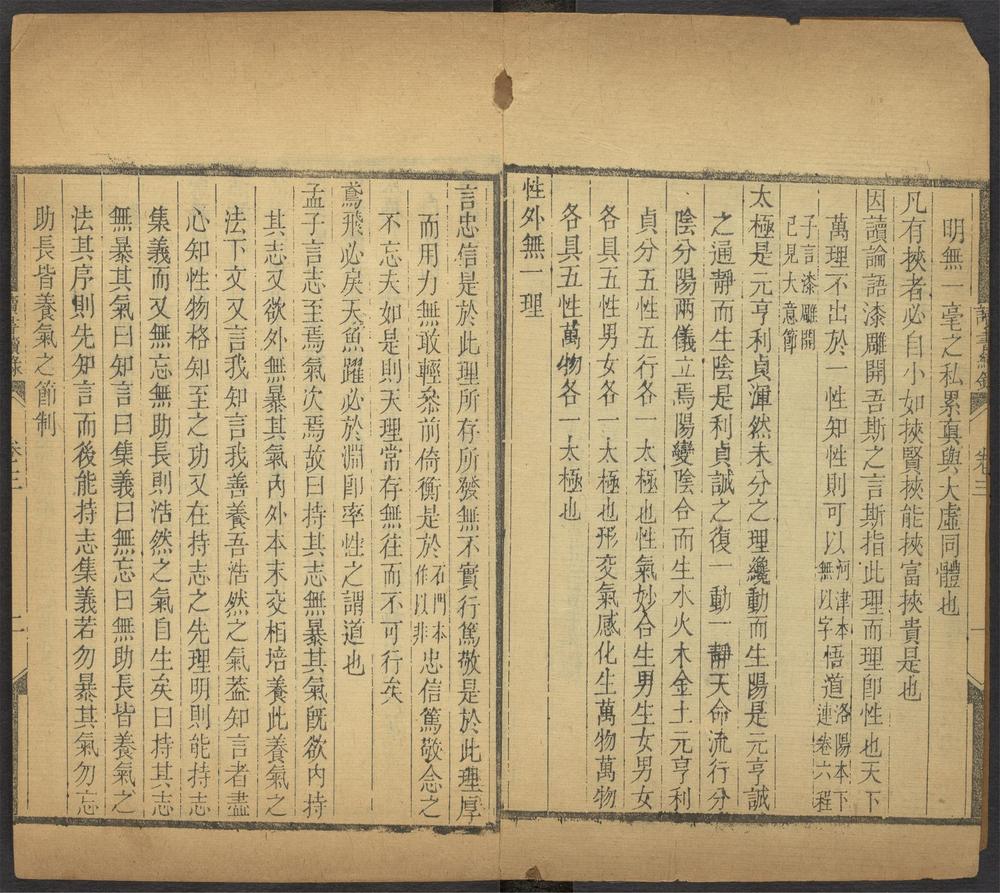 明無一毫之私累真與大虛同體也
凡有挾者必自小如挾賢挾能挾富挾貴是也
因讀論語漆雕開吾斯之言斯指此理而理卽性也天下
萬理不出於一性知性則可以河津本無以字悟道洛陽本下連卷六程
子言漆雕開已見大意節
太極是元亨利貞渾然未分之理纔動而生陽是元亨誠
之通靜而生陰是利貞誠之復一動一靜天命流行分
陰分陽兩儀立焉陽變陰合而生水火木金土元亨利
貞分五五性五行各一太極也性氣妙合生男生女男女
各具五性男女各一太極也形交氣感化生萬物萬物
各具五性萬物各一太極也
性外無一理
言忠信是於此理所存所發無不實行篤敬是於此理厚
而用力無敢輕叅前倚衡是於石門本作以非忠信篤敬念之
不忘夫如是則天理常存無往而不可行矣
鳶飛必戾天魚躍必於淵卽率性之謂道也
孟子言志至焉氣次焉故曰持其志無暴其氣旣欲內持
其志又欲外無暴其氣內外本末交相培養此養氣之
法下文又言我知言我善養吾浩然之氣蓋知言者盡
心知性物格知至之功又在持志之先理明則能持志
集義而又無忘無助長則浩然之氣自生矣曰持其志
無暴其氣曰知言曰集義曰無忘曰無助長皆養氣之
法其序則先知言而後能持志集義若勿暴其氣勿忘
助長皆養氣之節制
卷三
一
卷三
二